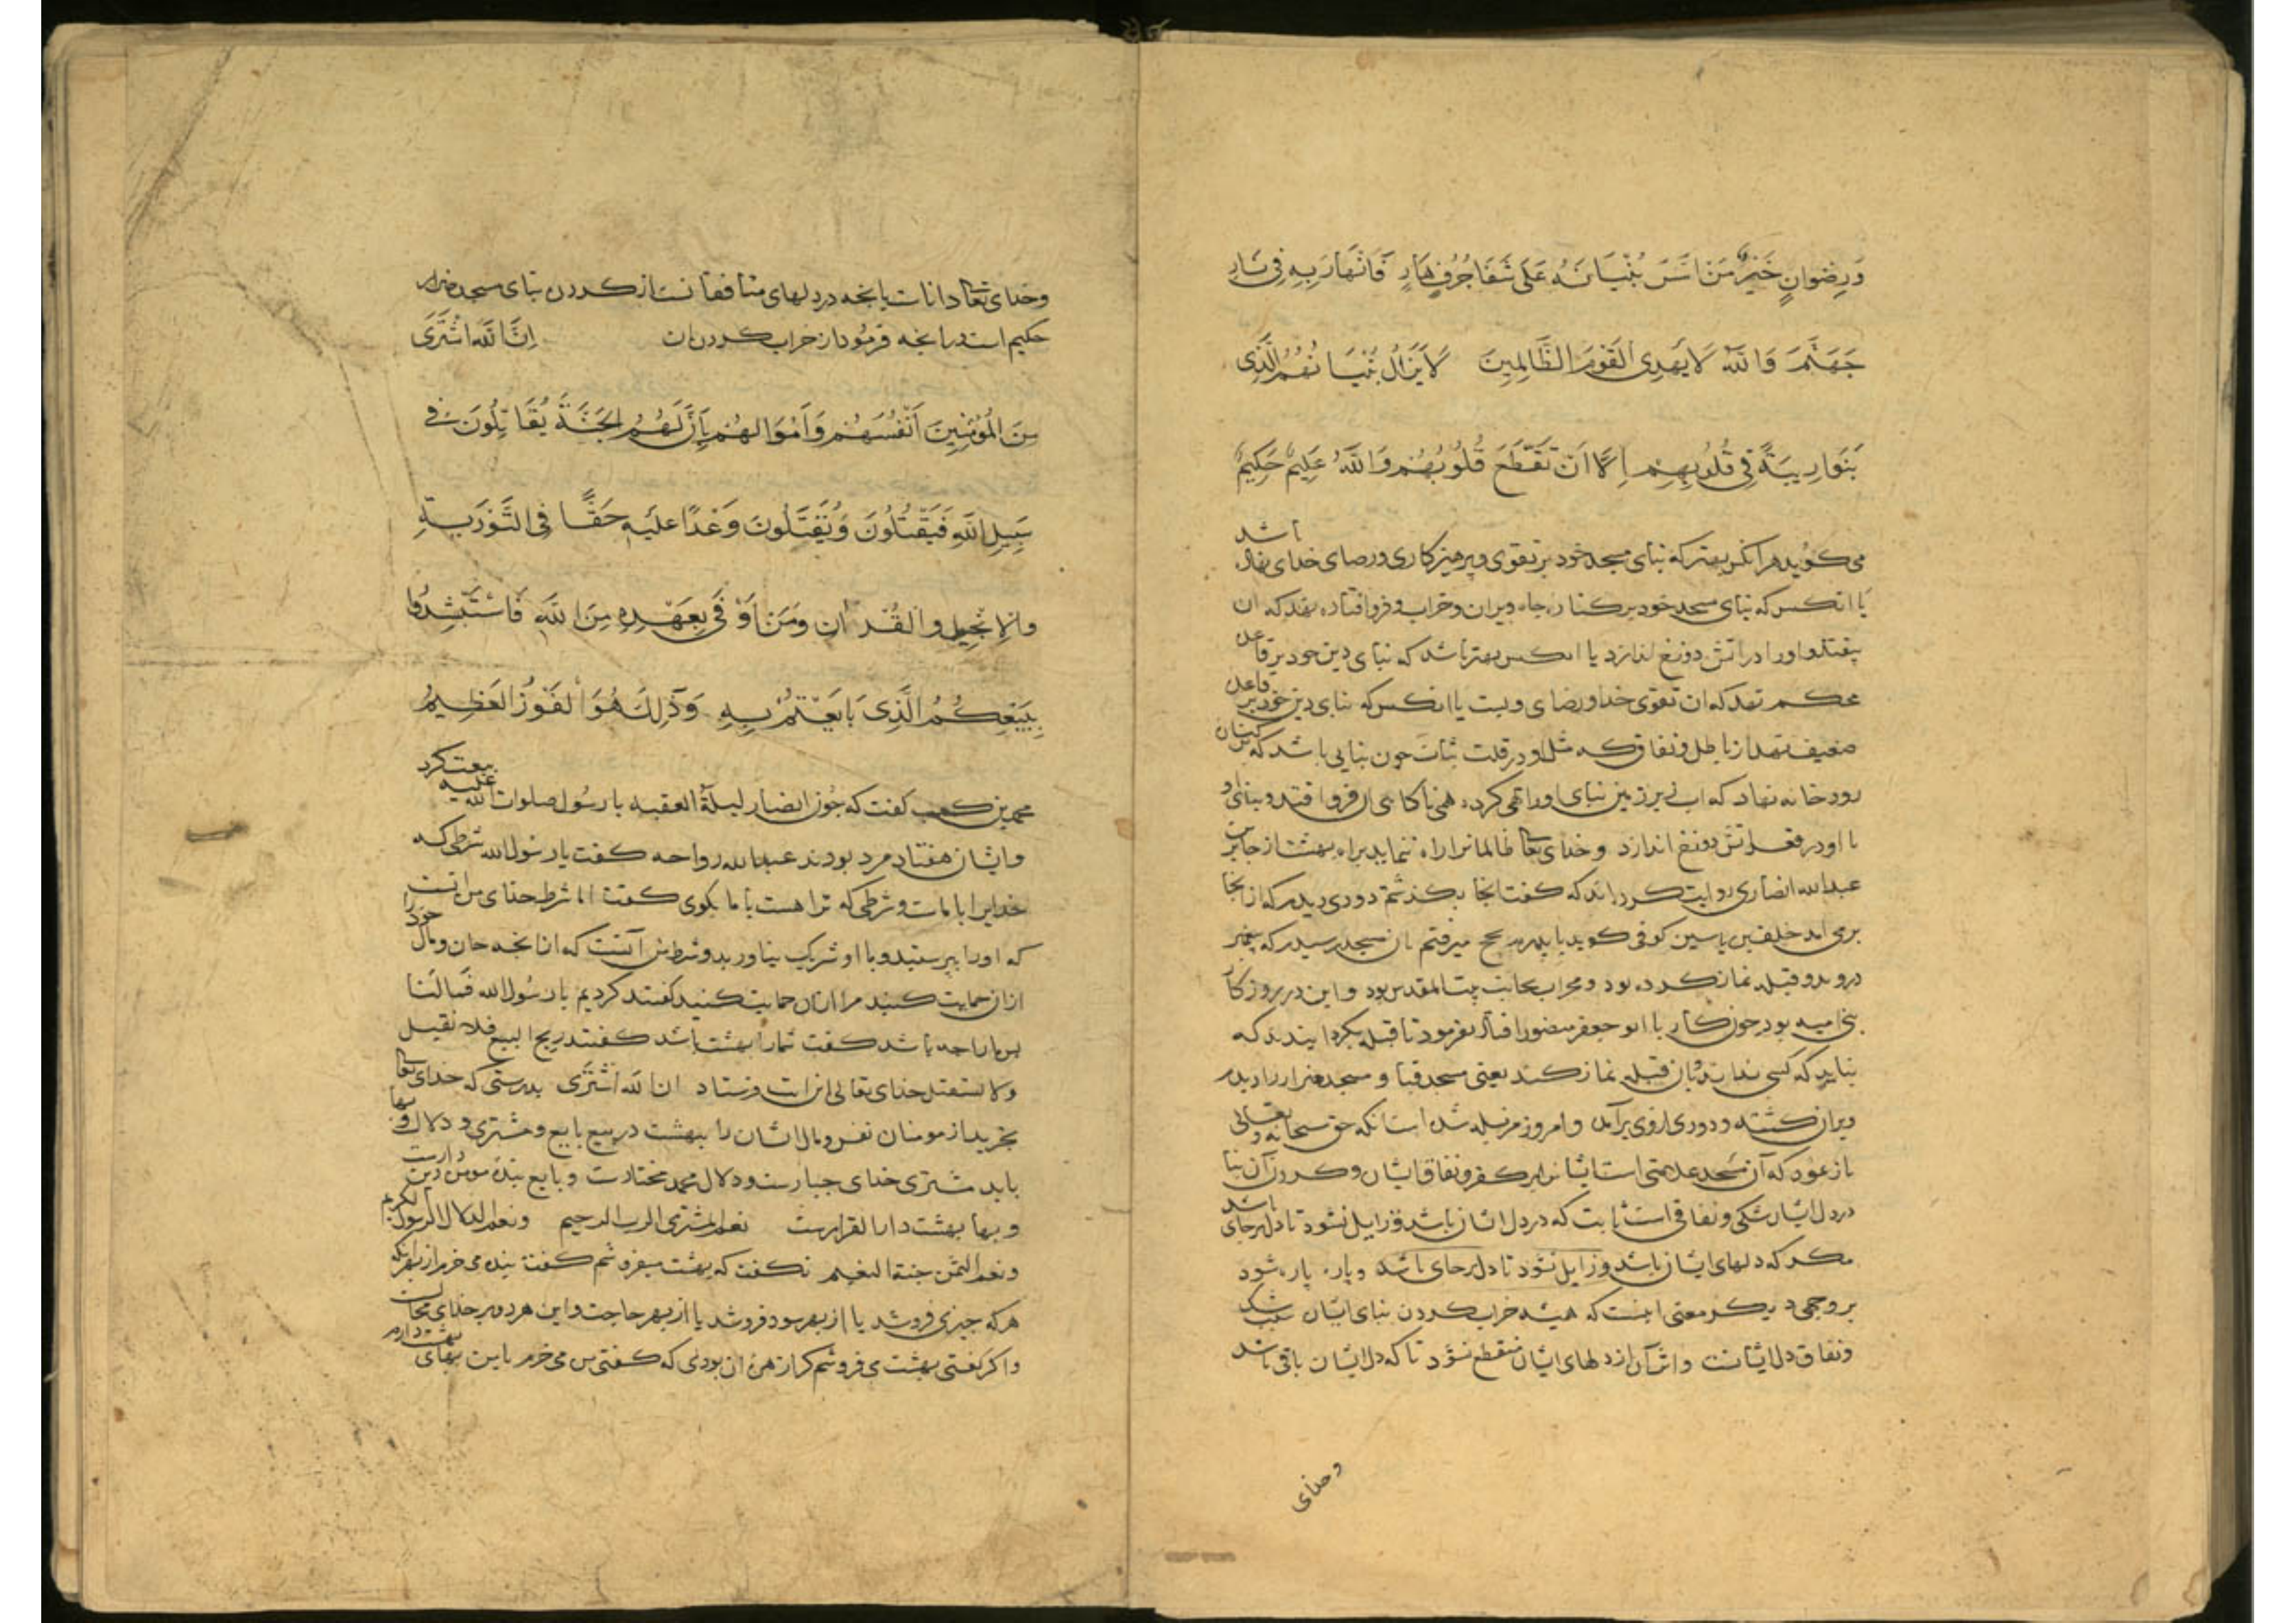 وَرِضْوَانٍ خَيْرٌ مَنْ اَسَّسَ بُنْيَانَهُ عَلَى شَفَا جُرُفٍ هَارٍ فَانْهَارَ بِهِ فِي نَارِ
جَهَنَّمَ وَاللّٰهُ لَا يَهْدِى الْقَوْمَ الظَّالِمِينَ لَا يَزَالُ بُنْيَانُهُمُ الَّذِى
بَنَوْا رِيبَةً فِى قُلُوبِهِمْ اِلَّا اَنْ تَقَطَّعَ قُلُوبُهُمْ وَاللّٰهُ عَلِيمٌ حَكِيمٌ
می کوید هر انکس بهتر که بنای مسجد خود بر تقوی و پرهیزکاری و رضای خدای نهاد باشد
یا انکس که بنای مسجد خود بر کنار جاه ویران و خراب و فرو افتاده نهد که ان
بیفتد و او را در اتش دوزخ اندازد یا انکس بهتر باشد که بنای دین خود بر قاعده
محکم نهد که ان تقوی خدا و رضای ویست یا انکس که بنای دین خود بر قاعده
ضعیف نهد از باطل و نفاق که مثل او در قلت ثبات جون بنایی باشد که بر کنار
رودخانه نهاد که اب زیر زمین بنای او را تهی کرده هی ناکاه فرو افتد و بنای
با او در قعر اتش دوزخ اندازد و خدای تعالی ظالمانرا راه ننماید براه بهشت از جابر بن
عبدالله انصاری روایت کرده اند که کفت انجا بکذشتم دودی دیدم که از انجا
بر می امد خلف بن یاسین کوفی کوید با پدرم بحج میرفتم بان مسجد رسیدم که پیغمبر
درو بدو قبله نماز کرده بود و محراب بجانب بیت المقدس بود و این در روزکار
بنی امیه بود جون کار با ابو جعفر منصور افتاد بفرمود تا قبله بکردانیدند که
نباید که کسی نداند و بان قبله نماز کند یعنی مسجد قبا و مسجد ضرار را دیدم
ویران کشته و دودی از وی برآمد و امروز مزبله شده است انکه حق سبحانه و تعالی
باز نمود که آن مسجد علامتی است ایشانرا بر کفر و نفاق ایشان و کردن آن بنا
در دل ایشان شکی و نفاقی است ثابت که در دل ایشان باشد و زایل نشود تا دل بر جای باشد
مکر که دلهای ایشان باشد و زایل نشود تا دل بر جای باشد و پاره پاره شود
بر وجهی دیکر معنی اینست که همیشه خراب کردن بنای ایشان سبب شک
و نفاق دل ایشانست و اثر آن از دلهای ایشان منقطع نشود تا که دل ایشان باقی باشد
وخدای
وخدای تعالی داناست بانجه در دلهای منافقانست از کردن بنای مسجد ضرار
حکیم است در انجه فرمود از خراب کردن ان اِنَّ اللّٰهَ اشْتَرَى
مِنَ الْمُؤْمِنِينَ اَنْفُسَهُمْ وَاَمْوَالَهُمْ بِاَنَّ لَهُمُ الْجَنَّةَ يُقَاتِلُونَ فِى
سَبِيلِ اللّٰهِ فَيَقْتُلُونَ وَيُقْتَلُونَ وَعْدًا عَلَيْهِ حَقًّا فِى التَّوْرَيةِ
وَالْاِنْجِيلِ وَالْقُرْاٰنِ وَمَنْ اَوْفَى بِعَهْدِهِ مِنَ اللّٰهِ فَاسْتَبْشِرُوا
بِبَيْعِكُمُ الَّذِى بَايَعْتُمْ بِهِ وَذٰلِكَ هُوَ الْفَوْزُ الْعَظِيمُ
محمد بن کعب کفت که جون انصار لیلة العقبه با رسول صلوات الله علیه بیعت کرد
و ایشان هفتاد مرد بودند عبدالله رواحه کفت یا رسول الله شرطی که
خدایرا با ماست و شرطی که ترا هست با ما بکوی کفت اما شرط خدای من انست
که او را بپرستید و با او شریک نیاورید و شرط من آنست که از انجه جان و مال خود را
ازان حمایت کنید مرا ازان حمایت کنید کفتند کردیم یا رسول الله فما لنا
پس ما را جه باشد کفت شما را بهشت باشد کفتند ربح البیع فلا نقیل
ولا نستقیل خدای تعالی این ایت فرستاد ان الله اشتری بدرستی که خدای تعالی
بخرید از مومنان نفس و مال ایشان را ببهشت در بیع بایع و مشتری و دلال و بها
باید مشتری خدای جبارست و دلال محمد مختارست و بایع بنده مومن دین دارست
و بها بهشت دارالقرارست نعم المشتری الرب الرحیم ونعم الدلال الرسول الکریم
ونعم الثمن جنة النعیم نکفت که بهشت میفروشم کفت بنده می خرم از بهر انکه
هر که جیزی فروشد یا از بهر سود فروشد یا از بهر حاجت و این هر دو بر خدای محالست
و اکر بکفتی بهشت می فروشم کرا زهره ان بودی که کفتی من می خرم باین بهای